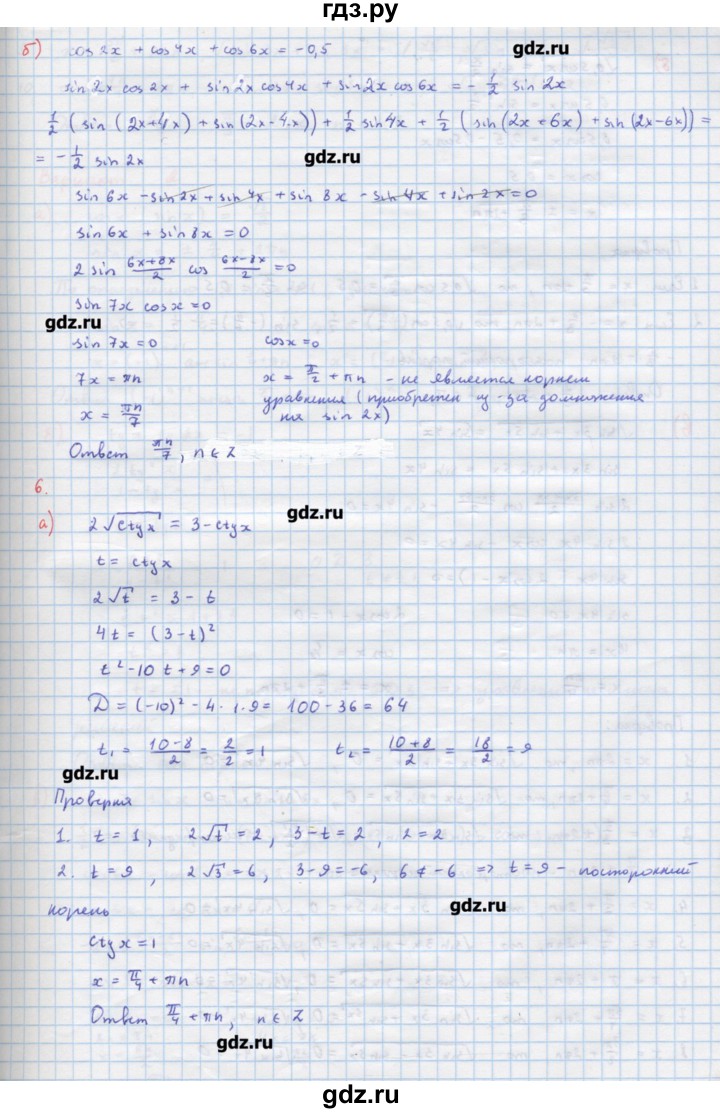 гдз.ру
б) cos 2x + cos 4x + cos 6x = -0,5
gdz.ru
sin 2x cos 2x + sin 2x cos 4x + sin 2x cos 6x = - 1/2 sin 2x
1/2 ( sin ( 2x+4x ) + sin (2x-4x)) + 1/2 sin 4x + 1/2 ( sin (2x+6x) + sin (2x-6x)) =
= - 1/2 sin 2x
gdz.ru
sin 6x - sin 2x + sin 4x + sin 8x - sin 4x + sin 2x = 0
sin 6x + sin 8x = 0
2 sin (6x+8x)/2 cos (6x-8x)/2 = 0
sin 7x cos x = 0
gdz.ru
sin 7x = 0 cos x = 0
7x = πn x = π/2 + πn - не является корнем
x = πn/7 уравнения (приобретен из-за домножения
на sin 2x)
Ответ πn/7, n ∈ Z
6.
gdz.ru
а) 2 √ctg x = 3 - ctg x
t = ctg x
2√t = 3 - t
4t = (3-t)²
t² - 10t + 9 = 0
D = (-10)² - 4·1·9 = 100 - 36 = 64
t₁ = (10-8)/2 = 2/2 = 1 t₂ = (10+8)/2 = 18/2 = 9
gdz.ru
Проверка
1. t = 1, 2√t = 2, 3-t = 2, 2 = 2
2. t = 9, 2√3 = 6, 3-9 = -6, 6 ≠ -6 => t = 9 - посторонний
корень
gdz.ru
ctg x = 1
x = π/4 + πn
Ответ π/4 + πn, n ∈ Z
gdz.ru
gdz.ru